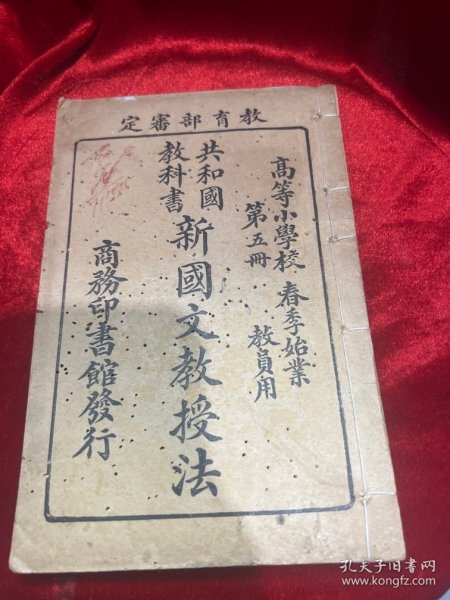 教育部審定
高等小學校 春季始業
第五冊 教員用
共和國
教科書
新國文教授法
商務印書館發行
孔夫子旧书网
www.kongfz.com